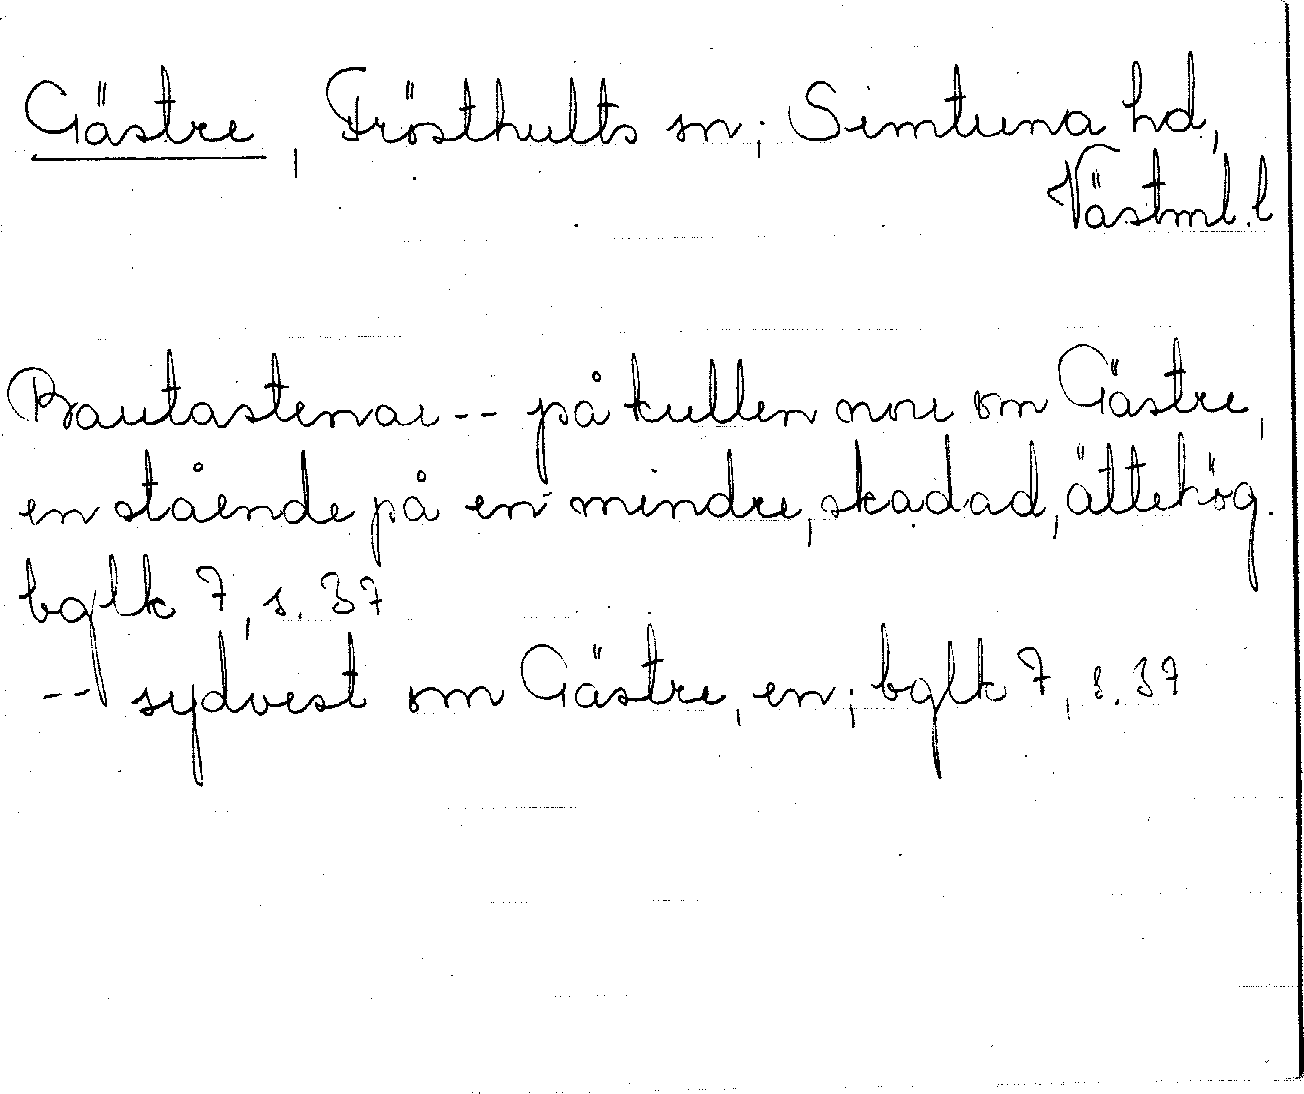 Gästre, Frösthults sn; Simtuna hd,
Västml. l
Bautastenar -- på kullen norr om Gästre,
en stående på en mindre, skadad, ättehög.
bglk 7, s. 37
-- sydvest om Gästre, en; bglk 7, s. 37